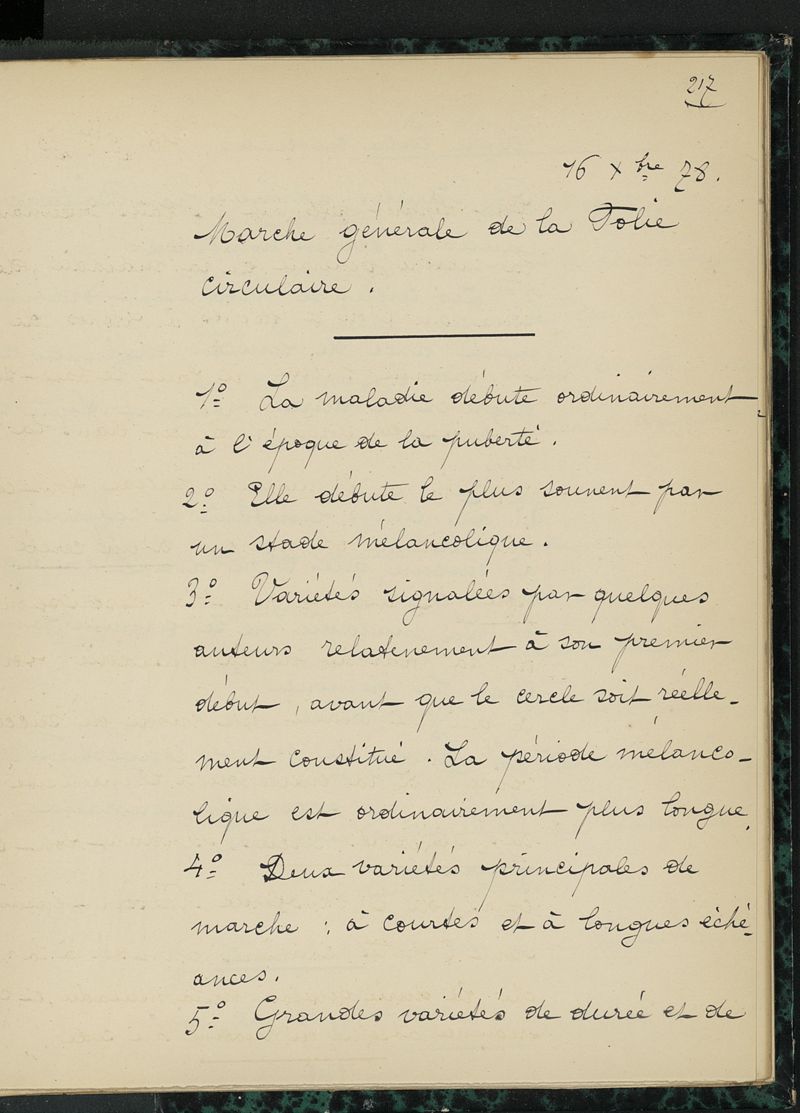 217
16 Xbre 78.
Marche générale de la Folie
circulaire.
1º La maladie débute ordinairement
à l'époque de la puberté.
2º Elle débute le plus souvent par
un stade mélancolique.
3º Variétés signalées par quelques
auteurs relativement à son premier
début, avant que le cercle soit réelle-
ment constitué. La période mélanco-
lique est ordinairement plus longue.
4º Deux variétés principales de
marche : à courtes et à longues éché-
ances.
5º Grandes variétés de durée et de